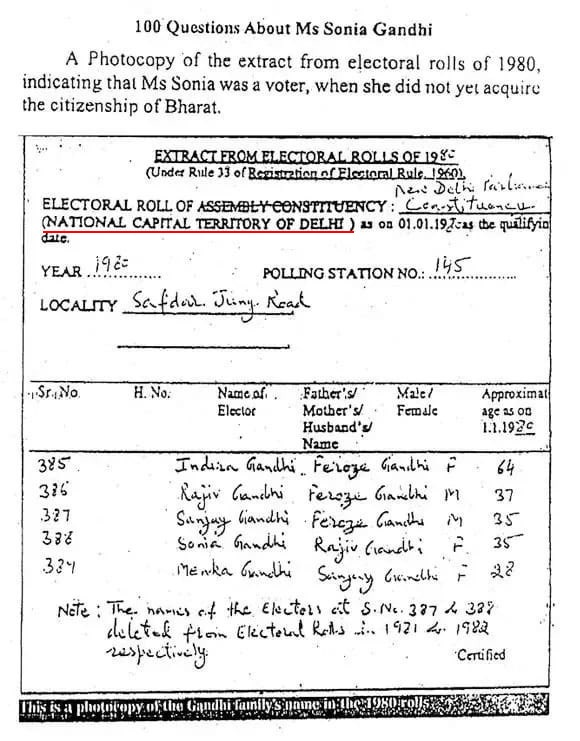 100 Questions About Ms Sonia Gandhi
A Photocopy of the extract from electoral rolls of 1980,
indicating that Ms Sonia was a voter, when she did not yet acquire
the citizenship of Bharat.
EXTRACT FROM ELECTORAL ROLLS OF 1980
(Under Rule 33 of Registration of Electoral Rule, 1960).
New Delhi Parliament
ELECTORAL ROLL OF ASSEMBLY CONSTITUENCY : Constituency
(NATIONAL CAPITAL TERRITORY OF DELHI ) as on 01.01.1980 as the qualifyin
date.
YEAR 1980 POLLING STATION NO.: 145
LOCALITY Safdar Jung Road
Sr. No. H. No. Name of Father's/ Male / Approximat
Elector Mother's/ Female age as on
Husband's/ 1.1.1980
Name
385 Indira Gandhi Feroze Gandhi F 64
386 Rajiv Gandhi Feroze Gandhi M 37
387 Sanjay Gandhi Feroze Gandhi M 35
388 Sonia Gandhi Rajiv Gandhi F 35
389 Menka Gandhi Sanjay Gandhi F 28
Note : The names of the Electors at S.No. 387 & 388
deleted from Electoral Rolls in 1981 & 1982
respectively.
Certified
This is a photocopy of the Gandhi family's name in the 1980 rolls